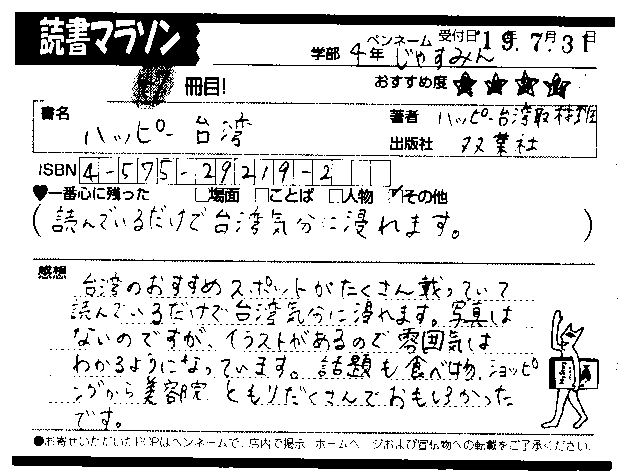 読書マラソン
学部 4年 ペンネーム じゃすみん 受付日 19.7月31日
冊目! おすすめ度 ★★★★
書名 ハッピー台湾 著者 ハッピー台湾取材班
出版社 双葉社
ISBN 4-575-29219-2
♥一番心に残った □場面 □ことば □人物 ☑その他
(読んでいるだけで台湾気分に浸れます。)
感想
台湾のおすすめスポットがたくさん載っていて
読んでいるだけで台湾気分に浸れます。写真は
ないのですが、イラストがあるので雰囲気は
わかるようになっています。話題も食べ物、ショッピ
ングから美容院ともりだくさんでおもしろかった
です。
●お寄せいただいたPOPはペンネームで、店内で掲示 ホームページおよび宣伝物への転載をご了承ください。